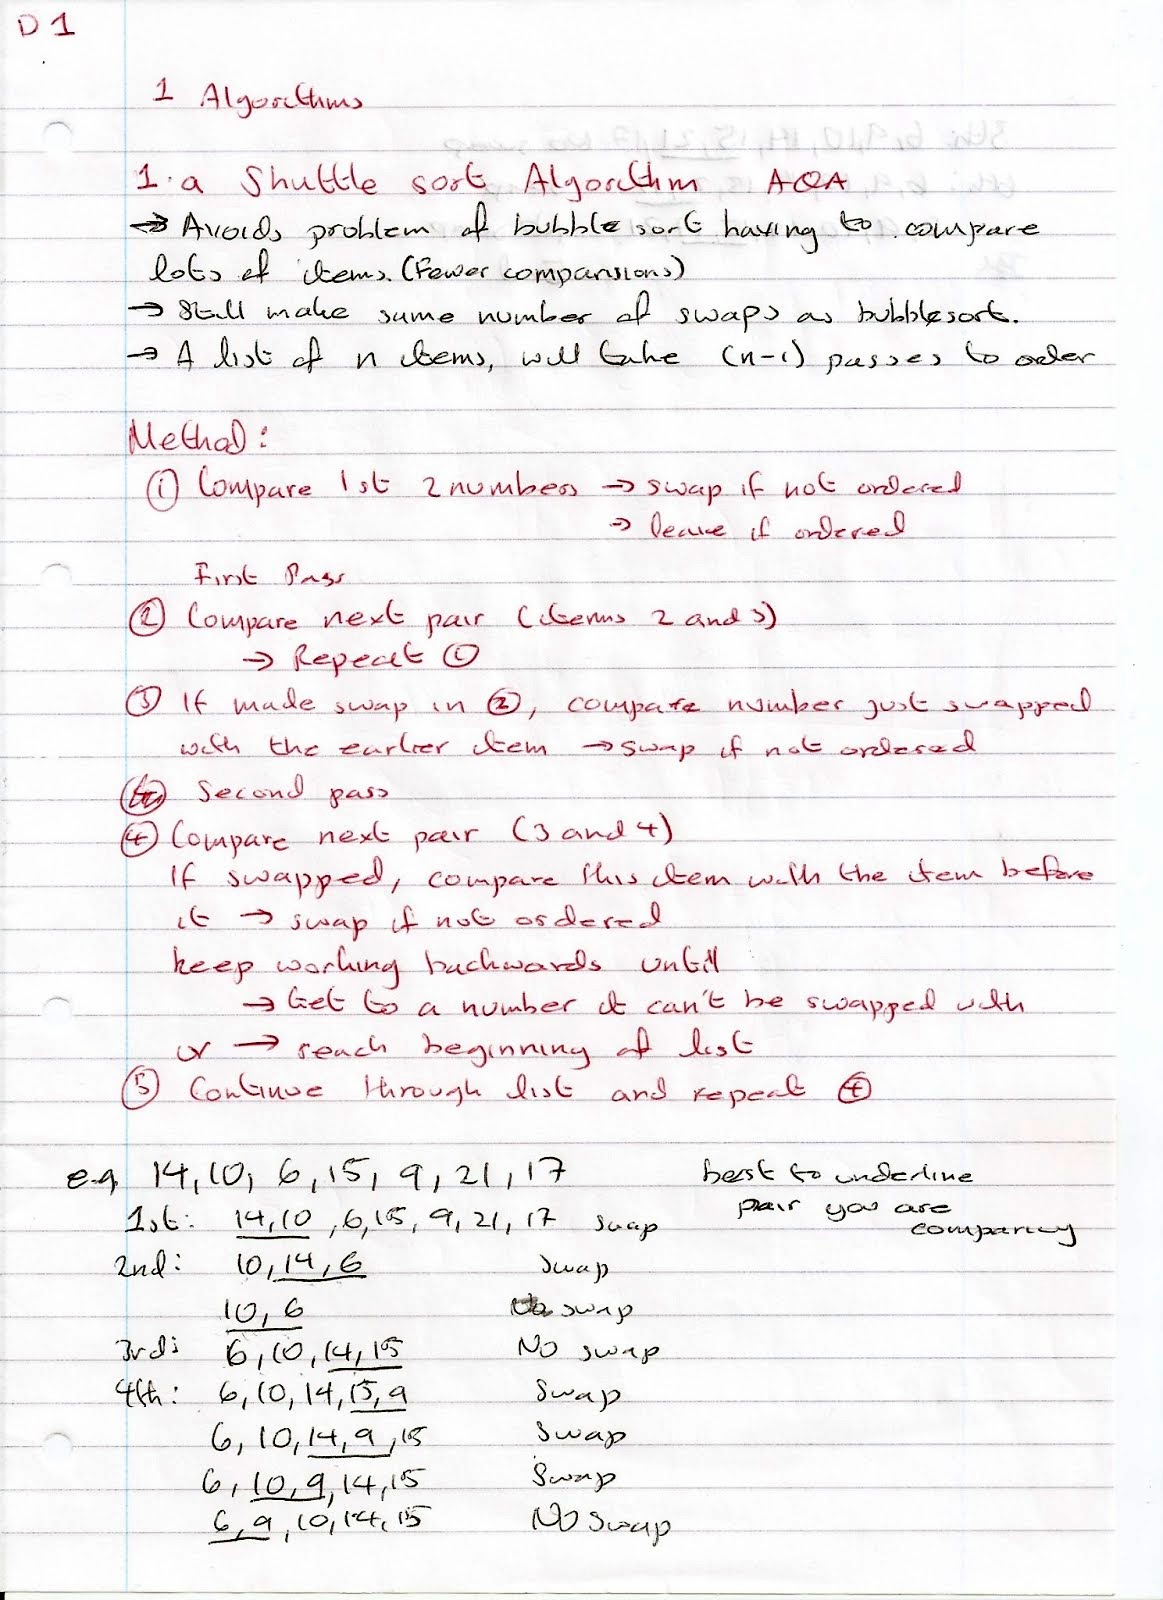 D1
1 Algorithms
1.a Shuttle sort Algorithm AQA
→ Avoids problem of bubble sort having to compare
lots of items. (Fewer comparisions)
→ Still make same number of swaps as bubblesort.
→ A list of n items, will take (n-1) passes to order
Method:
① Compare 1st 2 numbers → swap if not ordered
→ leave if ordered
First Pass
② Compare next pair (items 2 and 3)
→ Repeat ①
③ If made swap in ②, compare number just swapped
with the earlier item → swap if not ordered
Second pass
④ Compare next pair (3 and 4)
If swapped, compare this item with the item before
it → swap if not ordered
keep working backwards until
→ Get to a number it can't be swapped with
or → reach beginning of list
⑤ Continue through list and repeat ④
e.g. 14, 10, 6, 15, 9, 21, 17 best to underline
pair you are
1st: 14, 10, 6, 15, 9, 21, 17 swap comparing
2nd: 10, 14, 6 swap
10, 6 swap
3rd: 6, 10, 14, 15 No swap
4th: 6, 10, 14, 15, 9 swap
6, 10, 14, 9, 15 swap
6, 10, 9, 14, 15 swap
6, 9, 10, 14, 15 No swap